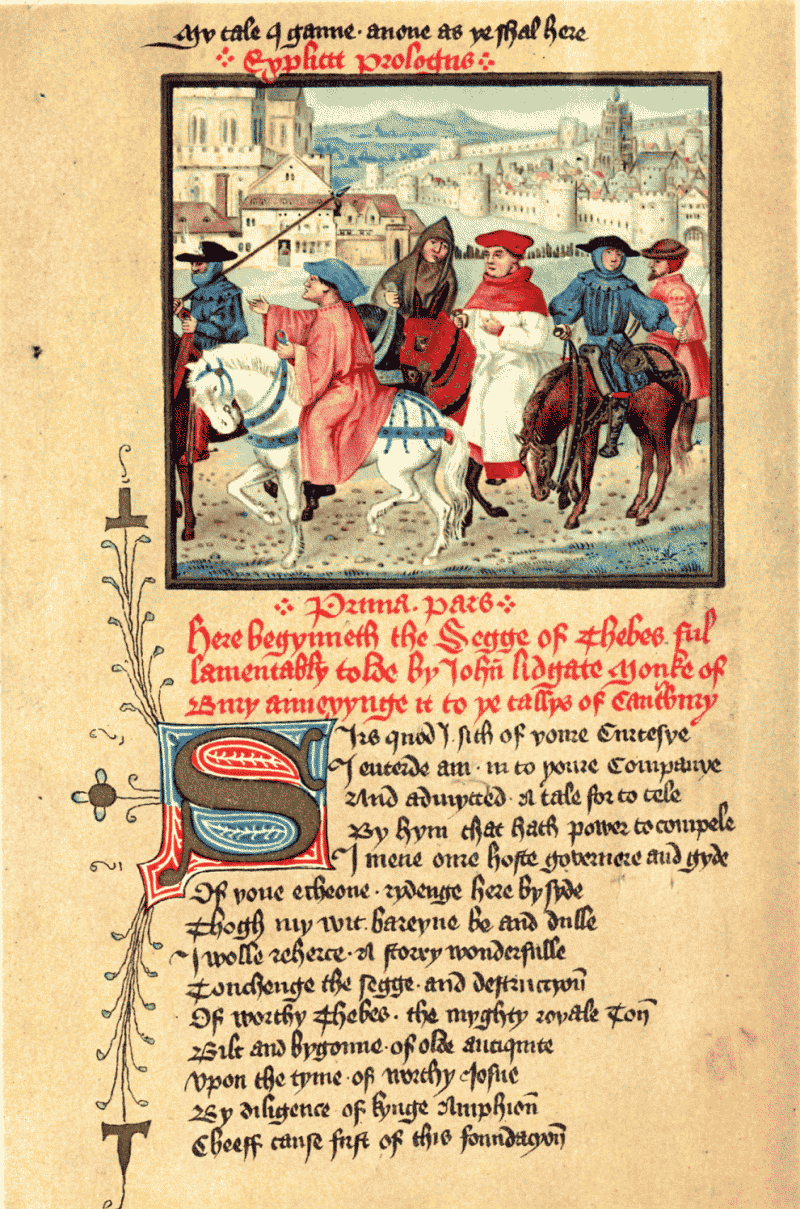 My tale I ganne · anone as ye shal here
Explicit Prologus
Prima · pars
Here begynneth the Segge of Thebes ful
lamentably tolde by John lidgate Monke of
Bury annexynge it to ye tallys of Cantbury
Sirs quod I sith of youre Curtesye
I enterde am · in to youre Companye
And admytted · A tale for to tele
By hym that hath power to compele
I mene oure hoste governere and gyde
Of youe echeone · rydenge here by syde
Thogh my wit bareyne be and dulle
I wolle reherce · A storry wonderfulle
Touchenge the segge · and destruccyoun
Of worthy Thebes · the myghty royale Toun
Bilt and bygonne · of olde antiquite
Vpon the tyme · of worthy Josue
By diligence of kynge Amphioun
Cheeff cause first of this foundacyoun